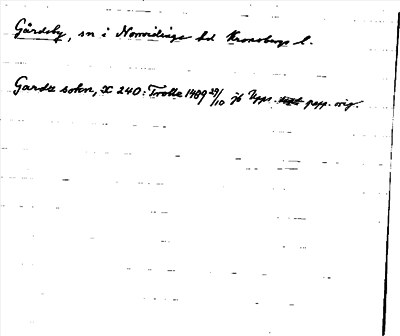 Gårdsby, sn i Norrvidinge hd Kronobergs l.
Garda sokn, X 240: Trolle 1489 29/10 jb Upps. papp. orig.